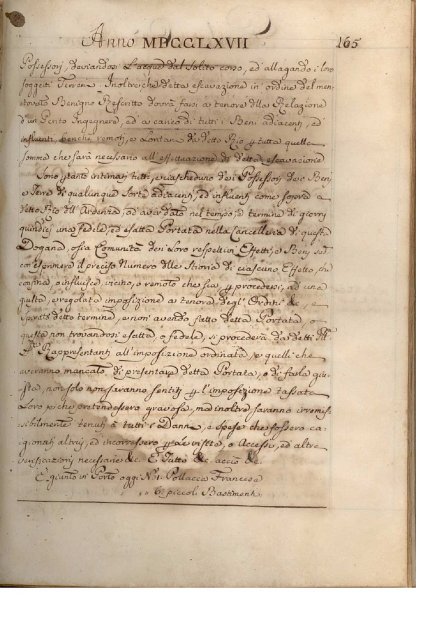 Anno MDCCLXVII 165
Possessori, deviandosi l'acque dal solito corso, ed' allagando i loro
soggetti Terreni. Inoltre che detta escavazione in ordine del men-
tovato Benigno Rescritto dovrà farsi a tenore della Relazione
d'un Perito Ingegnere, ed' a carico di tutti i Beni adiacenti, ed
influenti, benchè remoti, e lontani da detto Rio p tutta quella
somma che sarà necessaria all' effettuazione di detta escavazione
Sono p tanto intimati tutti, e ciascheduno de'i Possessori de'i Beni,
e Terre di qualunque Sorte adiacenti, ed influenti come sopra a
detto Rio dell' Ardenza, ad' aver dato nel tempo, e termine di giorni
quindici una fedele, ed esatta Portata nella Cancelleria di questa
Dogana, o sia Comunità dei loro respettivi Effetti, e Beni, ad
il preciso Numero delle Stiora di ciascuno Effetto, che
confina, o influisce, vicino, o remoto che sia p procedersi, ad una
giusta, e regolata imposizione a tenore degl' Ordini &c, e
spirato detto termine, e non' avendo fatto detta Portata, o
questa non trovandosi esatta, o fedele, si procederà da detti Ill.
SS. Rappresentanti all' imposizione ordinata, e quelli che
averanno mancato di presentare detta Portata, o di farla giu-
sta, non solo non saranno sentiti p l'imposizione tassata
Loro, che pretendessero gravosa, ma inoltre saranno irremis-
sibilmente tenuti a tutti i Danni, e spese che fossero ca-
gionati altrui, ed incorressero p tale visita, o Accesso, ed altre
verificazioni necessarie &c. E Tutto &c. acciò &c.
E giunto in Porto oggi N. 1. Pollacca Francese
" 6. piccoli Bastimenti